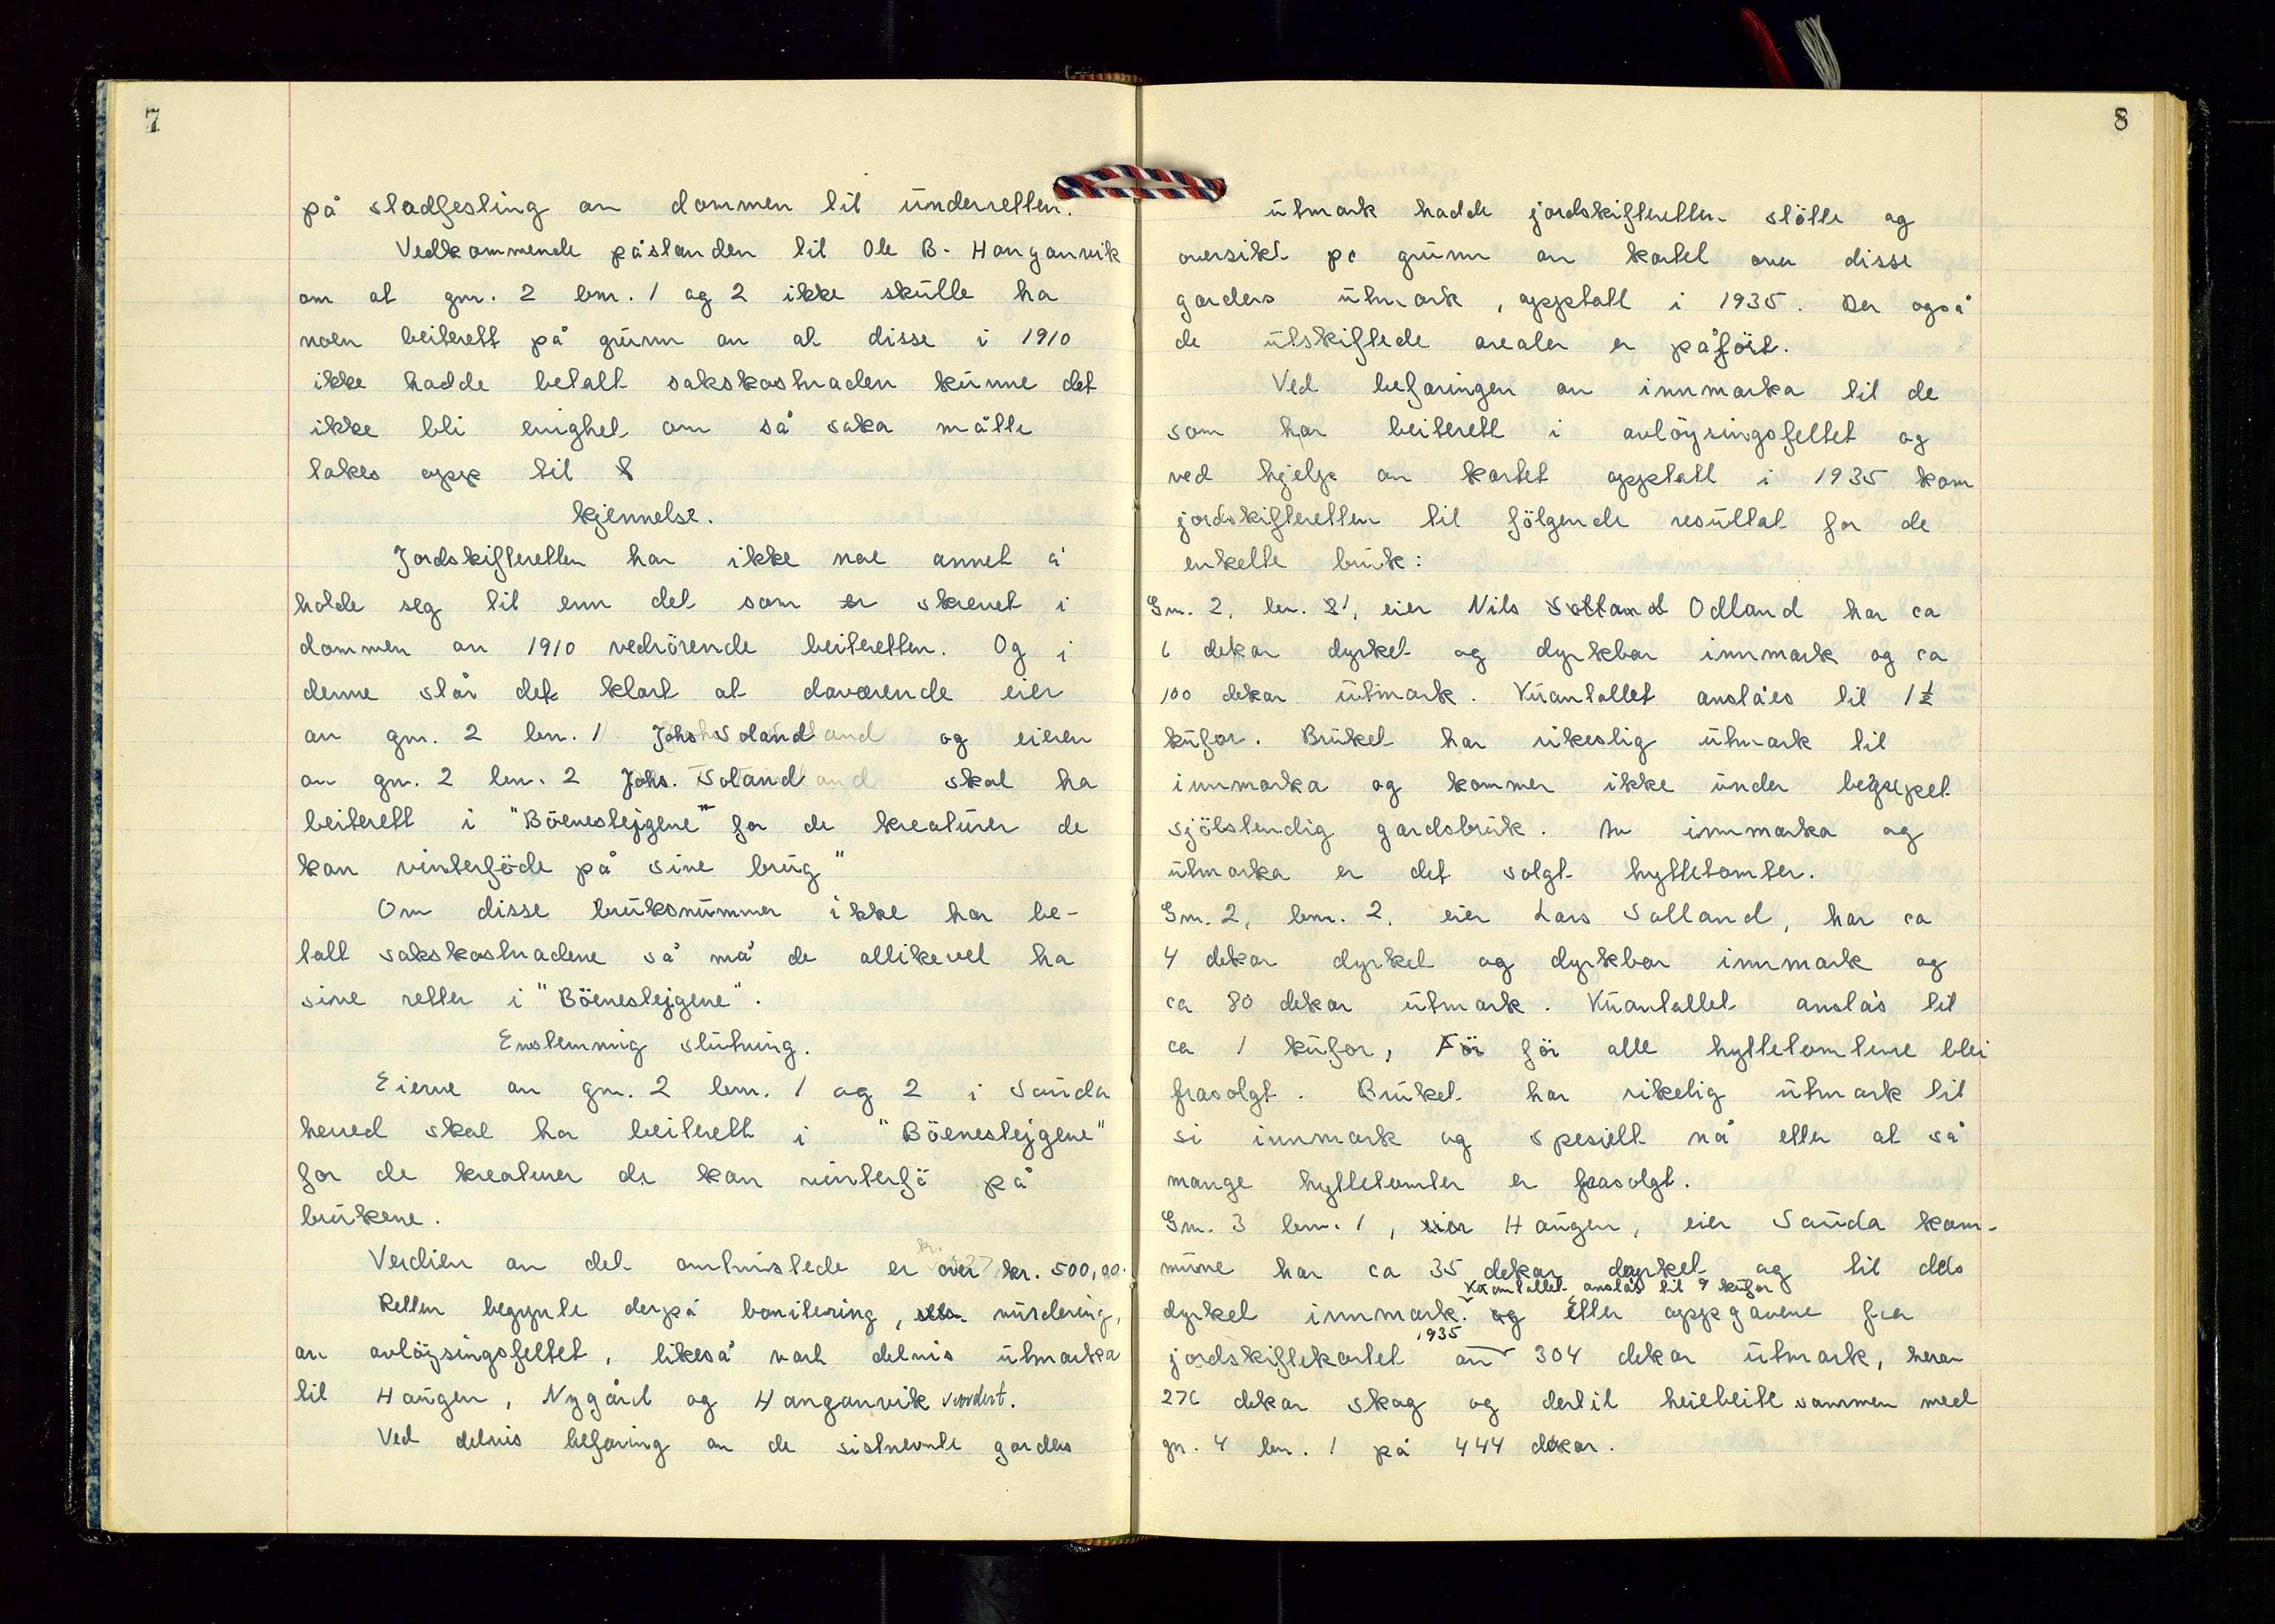 7
på stadfesting av dommen til underretten.
Vedkommende påstanden til Ole B. Hanganvik
om at gnr. 2 bnr. 1 og 2 ikke skulle ha
noen beiterett på grunn av at disse i 1910
ikke hadde betalt sakskostnaden kunne det
ikke bli enighet om så saka måtte
takes opp til
kjennelse.
Jordskifteretten har ikke noe annet å
holde seg til enn det som er skrevet i
dommen av 1910 vedrörende beiteretten. Og i
denne står det klart at daværende eier
av gnr. 2 bnr. 1 Johs Soland og eieren
av gnr. 2 bnr. 2 Johs. Soland skal ha
beiterett i "Böenestejgene" for de kreaturer de
kan vinterföde på sine brug"
Om disse bruksnummer ikke har be-
talt sakskostnadene så må de allikevel ha
sine retter i "Böenestejgene".
Enstemmig slutning.
Eierne av gnr. 2 bnr. 1 og 2 i Sauda
herred skal ha beiterett i "Böenestejgene"
for de kreaturer de kan vinterfö på
brukene.
Verdien av det omtvistede er over kr. 500,00.
Retten begynte derpå bonitering, vurdering,
av avlöysingsfeltet, likeså vart delvis utmarka
til Haugen, Nygård og Hanganvik vurdert.
Ved delvis befaring av de sistnevnte garders
8
utmark hadde jordskifteretten stötte og
oversikt på grunn av kartet over disse
garders utmark, opptatt i 1935. Der også
de utskiftede arealer er påfört.
Ved befaringen av innmarka til de
som har beiterett i avlöysingsfeltet og
ved hjelp av kartet opptatt i 1935 kom
jordskifteretten til fölgende resultat for de
enkelte bruk:
Gnr. 2, bnr. 1, eier Nils Solland Odland har ca
6 dekar dyrket og dyrkbar innmark og ca
100 dekar utmark. Kuantallet anslåes til 1½
kufor. Bruket har rikeslig utmark til
innmarka og kommer ikke under begrepet
sjölstendig gardsbruk. Av innmarka og
utmarka er det solgt hyttetomter.
Gnr. 2, bnr. 2, eier Lars Solland, har ca
4 dekar dyrket og dyrkbar innmark og
ca 80 dekar utmark. Kuantallet anslås til
ca 1 kufor, För för alle hyttetomtene blei
frasolgt. Bruket har rikelig utmark til
si innmark og spesielt nå etter at så
mange hyttetomter er frasolgt.
Gnr. 3 bnr. 1, eier Haugen, eier Sauda kom-
mune har ca 35 dekar dyrket og til dels
Kuantallet anslås til 9 kufor
dyrket innmark. og Etter oppgavene fra
1935
jordskiftekartet av 304 dekar utmark, herav
276 dekar skog og dertil heiebeite sammen med
gnr. 4 bnr. 1 på 444 dekar.